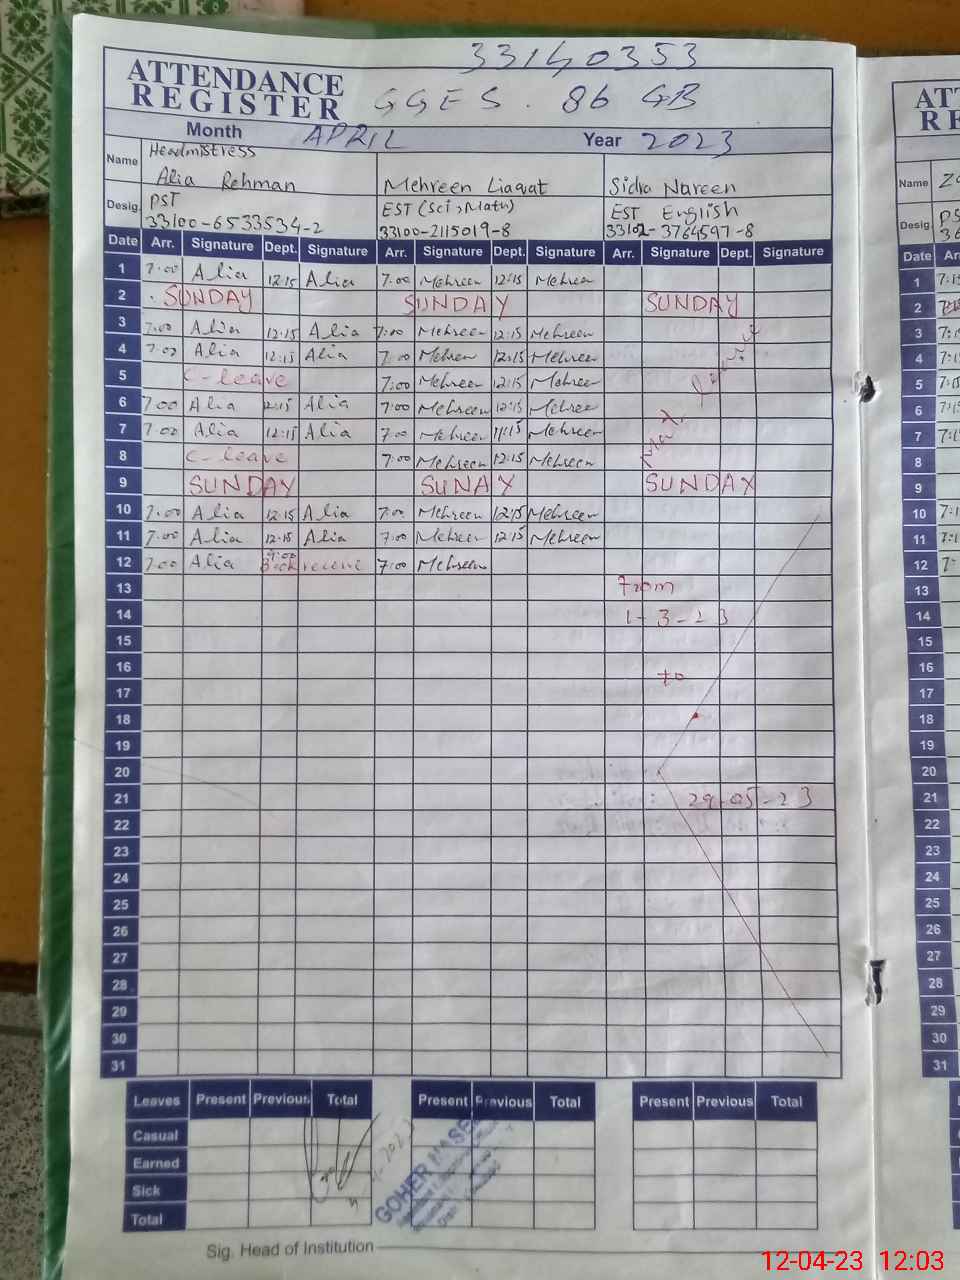 33140353
ATTENDANCE
REGISTER
GGES. 86 GB
Month APRIL Year 2023
Name Headmistress
Alia Rehman Mehreen Liaqat Sidra Nareen
Desig. PST EST (Sci, Math) EST English
33100-6533534-2 33100-2115019-8 33102-3764597-8
Date Arr. Signature Dept. Signature Arr. Signature Dept. Signature Arr. Signature Dept. Signature
1 7:00 Alia 12:15 Alia 7:00 Mehreen 12:15 Mehreen
2 SUNDAY SUNDAY SUNDAY
3 7:00 Alia 12:15 Alia 7:00 Mehreen 12:15 Mehreen
4 7:00 Alia 12:15 Alia 7:00 Mehreen 12:15 Mehreen
5 C-leave 7:00 Mehreen 12:15 Mehreen
6 7:00 Alia 12:15 Alia 7:00 Mehreen 12:15 Mehreen
7 7:00 Alia 12:15 Alia 7:00 Mehreen 11:15 Mehreen
8 C-leave 7:00 Mehreen 12:15 Mehreen
9 SUNDAY SUNAY SUNDAY
10 7:00 Alia 12:15 Alia 7:00 Mehreen 12:15 Mehreen
11 7:00 Alia 12:15 Alia 7:00 Mehreen 12:15 Mehreen
12 7:00 Alia 7:00 Mehreen
13 From
14 1-3-23
15
16 to
17
18
19
20
21 29-05-23
22
23
24
25
26
27
28
29
30
31
Leaves Present Previous Total Present Previous Total Present Previous Total
Casual
Earned
Sick
Total
GOHER
Sig. Head of Institution
Name
Desig.
Date
1
2
3
4
5
6
7
8
9
10
11
12
13
14
15
16
17
18
19
20
21
22
23
24
25
26
27
28
29
30
31
12-04-23 12:03